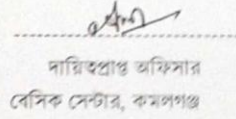 দায়িত্বপ্রাপ্ত অফিসার
বেসিক সেন্টার, কমলগঞ্জ